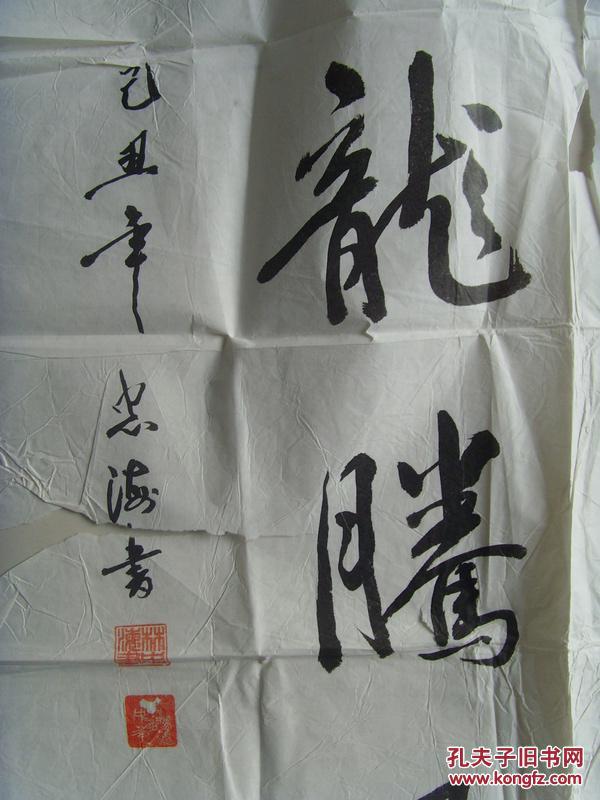 龍騰
己丑年 忠海書
孔夫子旧书网
www.kongfz.com